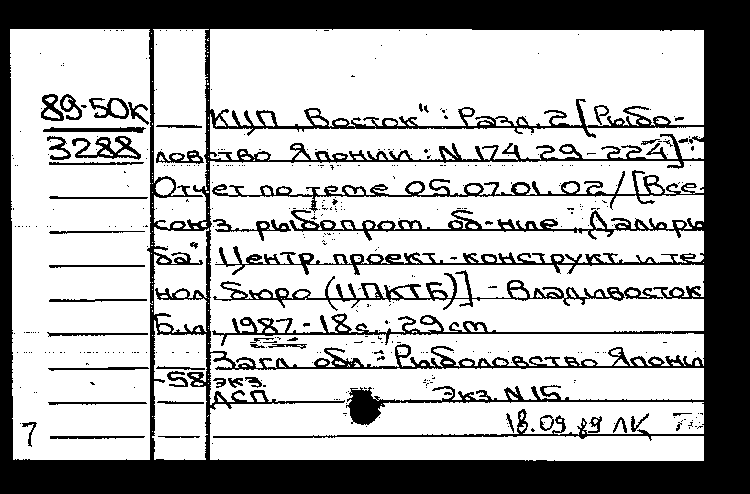 89-50к
3288
КЦП „Восток“: Разд. 2 [Рыбо-
ловство Японии: N 174.29-224]:
Отчет по теме 05.07.01.02/[Все-
союз. рыбопром. об-ние „Дальры
ба“. Центр. проект.-конструкт. и тех
нол. бюро (ЦПКТБ)]. - Владивосток
Б.и., 1987. - 18с.; 29 см.
Загл. обл.: Рыболовство Японии
-58 экз.
ДСП. Экз. N 15.
7 18.09.89 ЛК